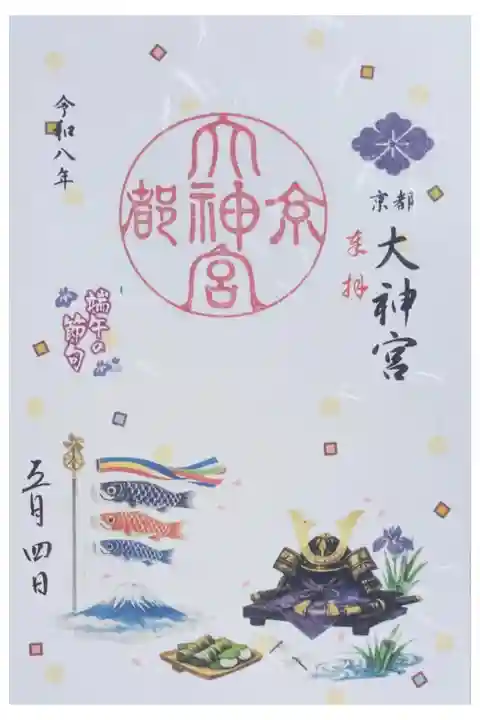 京都
大神宮
奉拝
大神宮
京都
令和八年
端午の
節句
五月四日